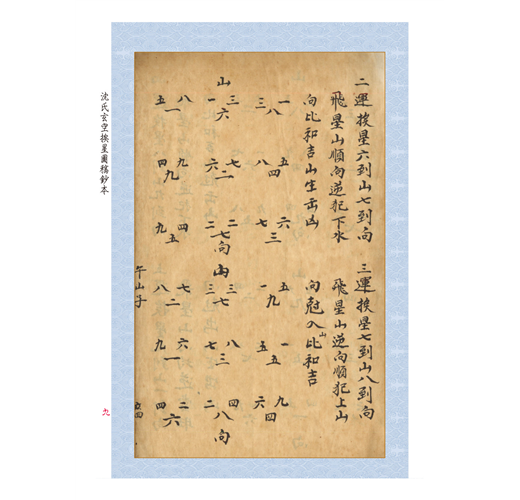 二運挨星六到山七到向
飛星山順向逆犯下水
向比和吉山生出凶
一 三 八
五 八 四
六 七 三
山
三 一 六
七 六 二
二 二 七
向
八 五 一
九 四 九
四 九 五
三運挨星七到山八到向
飛星山逆向順犯上山
向尅入山比和吉
五 一 九
一 五 五
九 六 四
山
三 三 七
八 七 三
四 二 八
向
七 八 二
六 九 一
二 四 六
午山子
沈氏玄空挨星圖稿鈔本
九